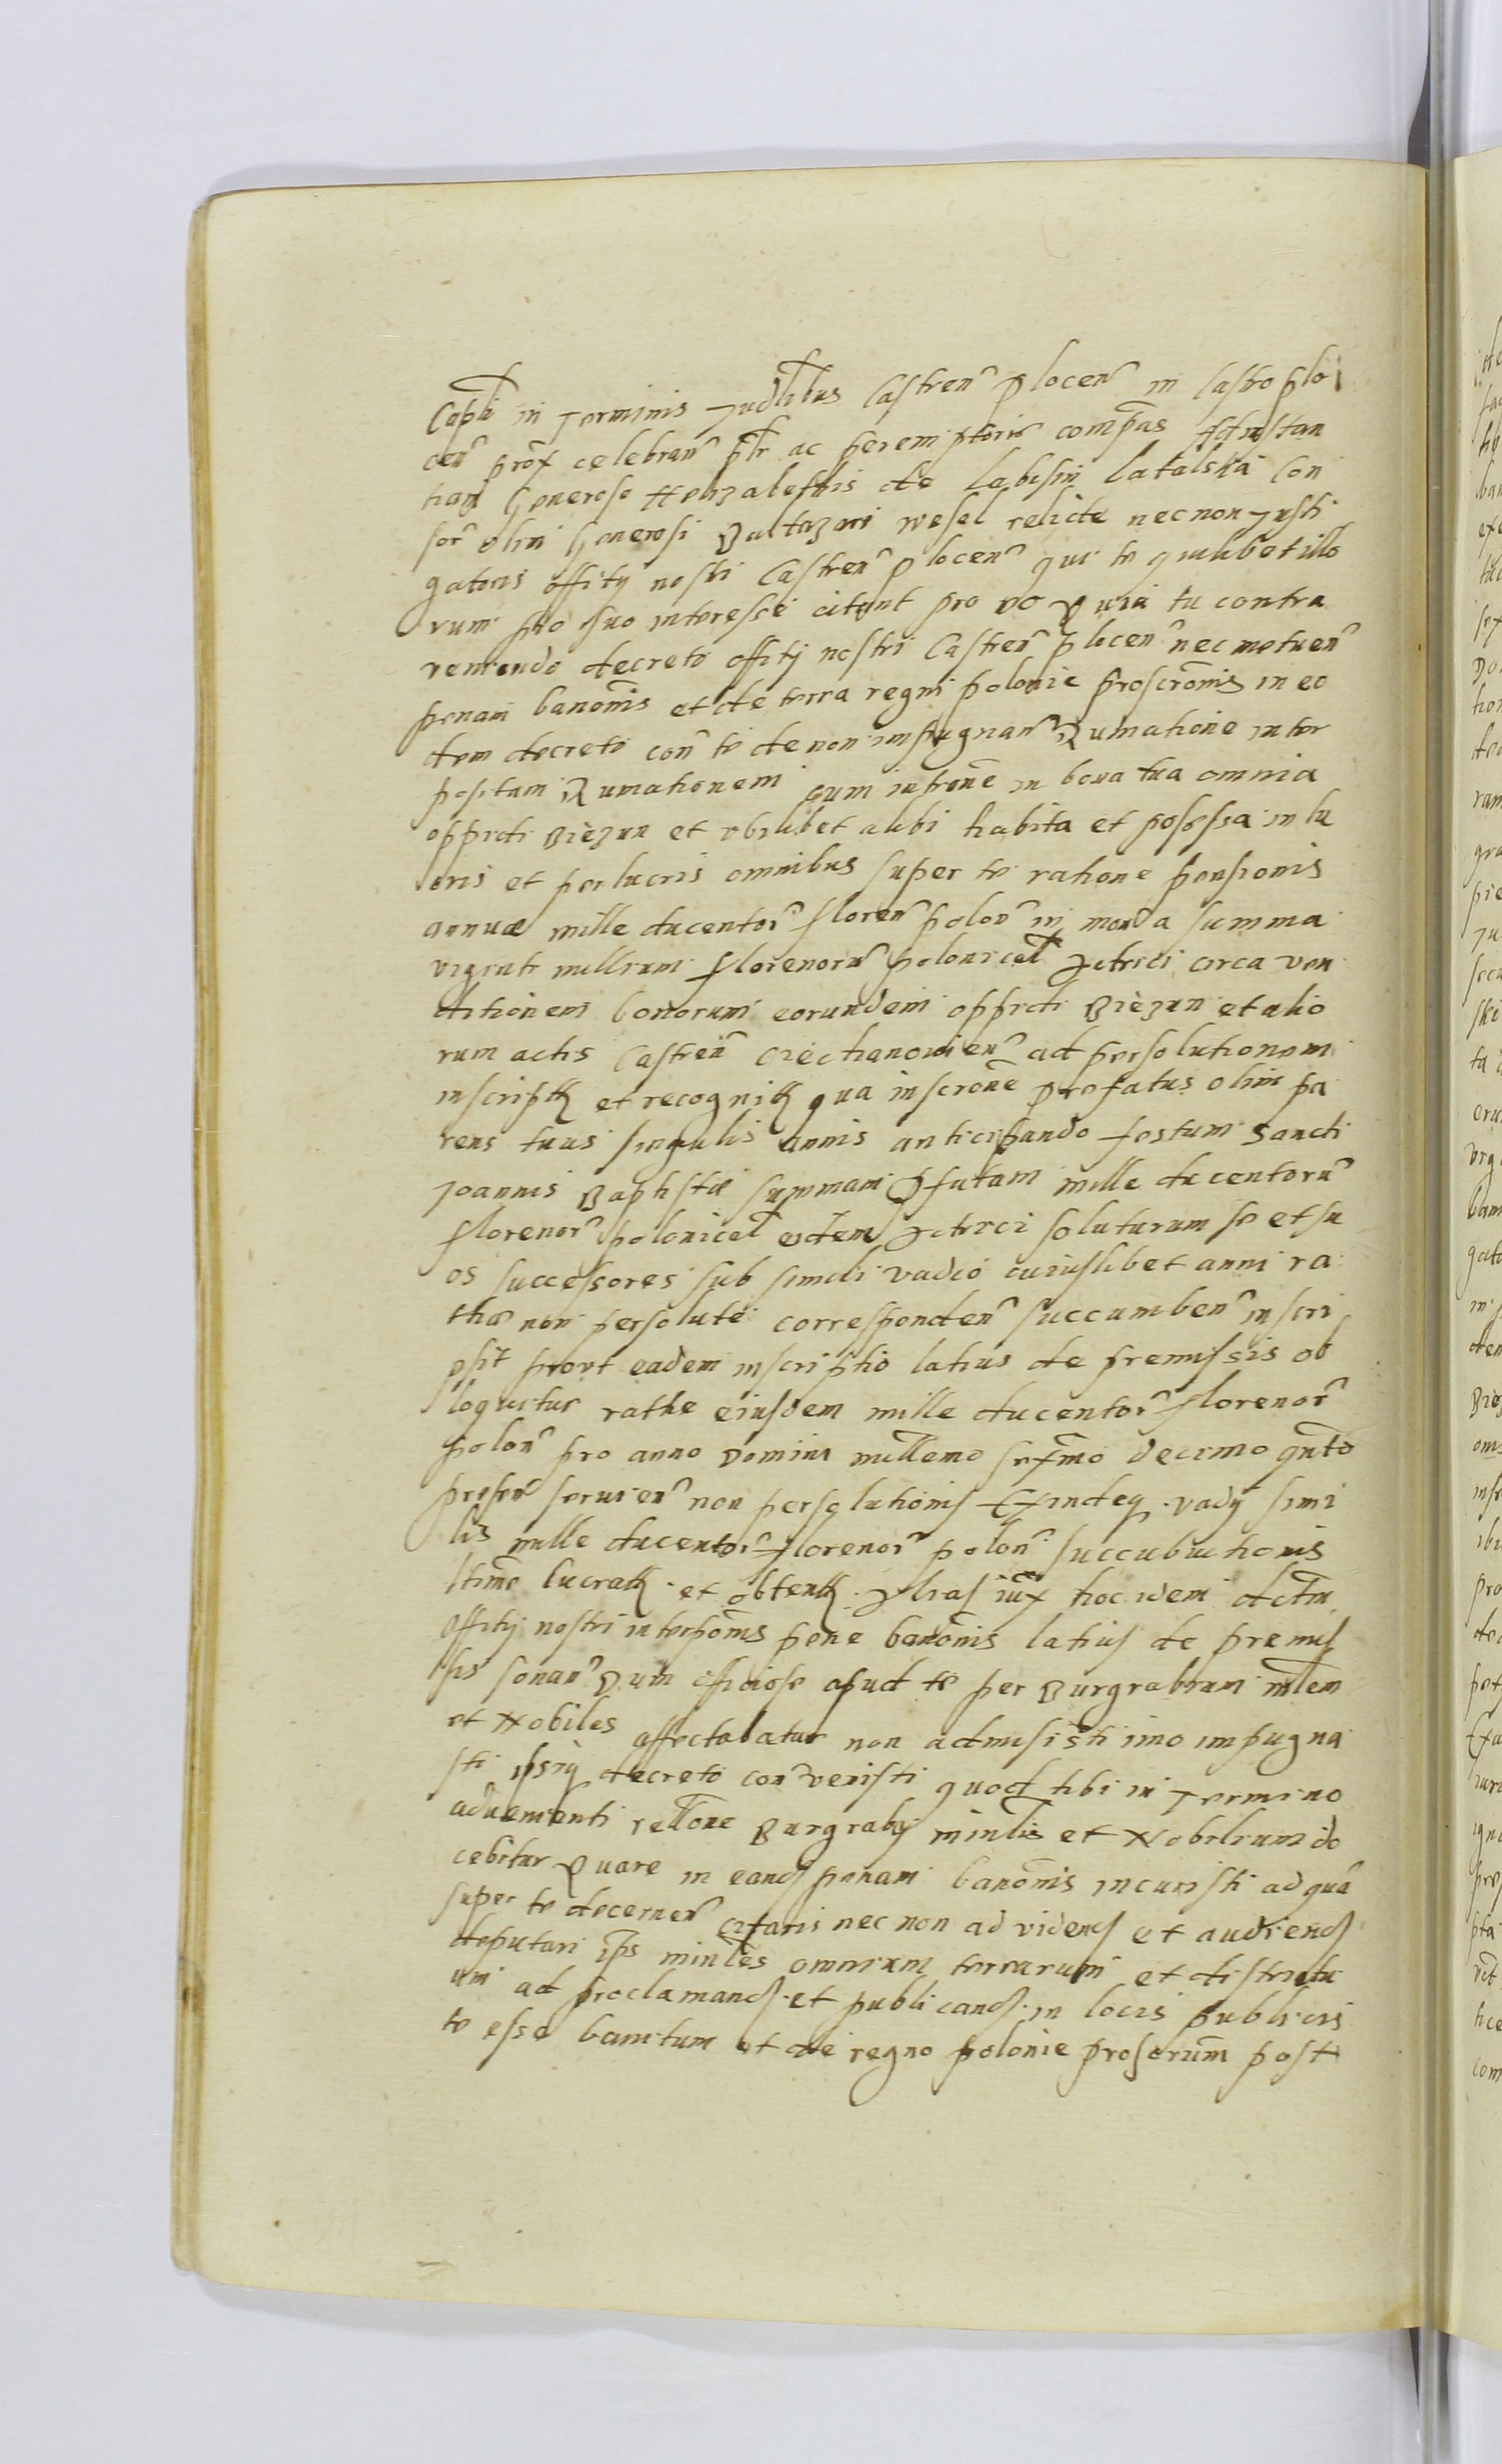 Capli in Terminis Judlibus Castren Plocen in Castro Plo
cen prox celebran plr ac peremptorie compas Ad instan
tiam Generose Helizabethis de Labisin Latalska Con
sor olim Generosi Baltazari Wesel relicte necnon Insti
gatoris offity nostri Castren Plocen qui te quilibet illo
rum pro suo interesse citant pro eo Quia tu contra
veniendo decreto offity nostri Castren Plocen nec metuen
penam banonis et de terra regni polonie proscronis in eo
dem decreto con te de non impugnan Rumatione inter
positam Rumationem cum introne in bona tua omnia
oppidi Biezun et vbilibet alibi habita et possessa in lu
cris et perlucris omnibus super te ratione pensionis
annuæ mille ducentor floren polon in summa
viginti millium florenorum polonical Actrici circa ven
ditionem bonorum eorundem oppidi Biezun et alio
rum actis Castren Ciechanovien ad persolutionem
inscript et recognit qua inscrone Prefatus olim pa
rens tuus singulis annis anticipando festum Sancti
Joannis Baptistæ summam Pfatam mille ducentorum
florenor polonical eidem Actrici soluturum se et su
os successores sub simili vadio cuiuslibet anni ra
thæ non persolute corresponden succumben inscri
psit prout eadem inscriptio latius de premissis ob
loquitur rathe eiusdem mille ducentor florenor
polon pro anno Domini millemo sexmo decimo qnto
presen seruien non persolutionis Exindeq vady simi
lis mille ducentor florenor polon succubuitionis
stime lucrat et obtent Alias iux hoc idem dctm
offity nostri interponis pene banonis latius de premis
sis sonan Dum officiose apud te per Burgrabium mlem
et Nobiles affectabatur non admisisti imo impugna
sti ipsiq decreto conuenisti quod tibi in Termino
aduenienti rellone Burgraby minlis et Nobilium do
cebitur Quare in eand penam banonis incuristi ad qua
super te decernen citaris nec non ad videnq et audienq
deputari ips minles omnium terrarum et districtu
um ad proclamand et publicand in locis publicis
te esse banitum et de regno polonie proscrium post